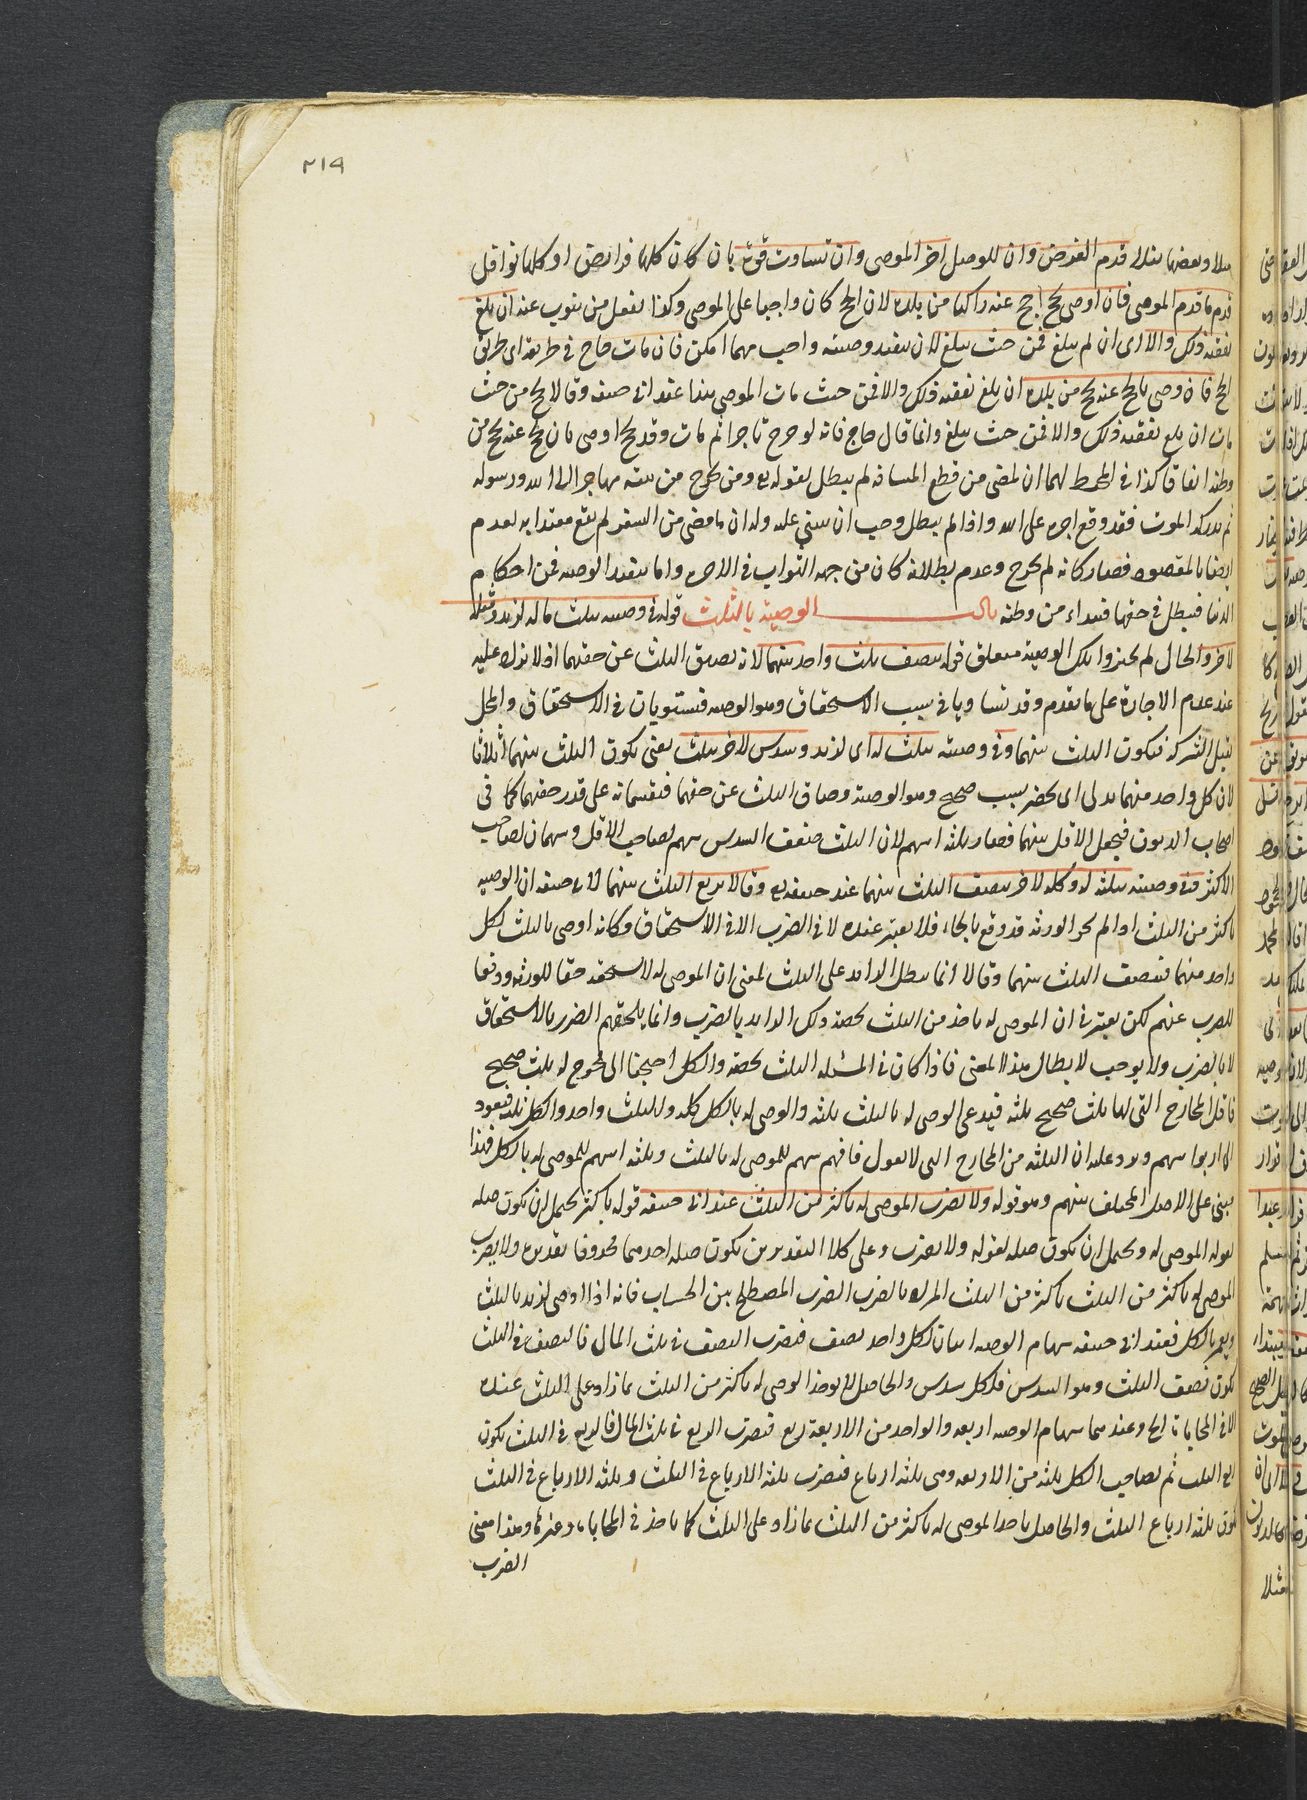 ٢١٩
مثلا وبعضها نفلا قدم الفرض وان للوصل اخر الموصى وان تساوت قوة بان كان كلها فرائض او كلها نوافل
قدم ما قدم الموصى فان اوصى بحج احج عنه راكبا من بلده لان الحج كان واجبا على الموصى وكذا يفعل من ينوب عنه ان بلغ
نفقته ذلك والا اى ان لم يبلغ فمن حيث يبلغ لان تنفيذ وصيته واجب مهما امكن فان مات حاج فى طريقه اى طريق
الحج فان وصى بالحج عنه يحج من بلده ان بلغ نفقته ذلك والا فمن حيث مات الموصى هذا عند ابى حنيفه وقالا يحج من حيث
مات ان بلغ نفقته ذلك والا فمن حيث يبلغ وانما قال حاج فانه لو خرج تاجرا ثم مات وقد يحج اوصى بان يحج عنه يحج من
وطنه اتفاقا كذا فى المحيط لهما ان لمضى من قطع المسافة لم يبطل لقوله تع ومن يخرج من بيته مهاجرا الى الله ورسوله
ثم يدركه الموت فقد وقع اجره على الله واذا لم يبطل وجب ان يبنى عليه وله ان ما مضى من السفر لم يقع معتدا به لعدم
ايصنا بالمقصود فصار كانه لم يخرج وعدم بطلانه كان من جهة الثواب فى الاخره واما تنفيذ الوصيه فمن احكام
الدنيا فيبطل فى حقها فيبداء من وطنه باب الوصية بالثلث قوله فى وصيته بثلث ماله لزيد ومثله
لاخر والحال لم يجيزوا تلك الوصية متعلق قوله ينصف ثلث واحد بينهما لانه يضيق الثلث عن حقهما اذ لا يزاد عليه
عند عدم الاجازة على ما تقدم وقد تساويا فى سبب الاستحقاق وهو الوصيه فيستويان فى الاستحقاق والمحل
يقبل الشركة فيكون الثلث بينهما وفى وصيته بثلث له اى لزيد وسدس لاخر يثلث يعنى يكون الثلث بينهما اثلاثا
لان كل واحد منهما يدلى اى يحضر بسبب صحيح وهو الوصية وضاق الثلث عن حقهما فيقسمانه على قدر حقهما كما فى
اصحاب الديون فيجعل الاقل بينهما فصار ثلثه اسهم لان الثلث ضعف السدس سهم لصاحب الاقل وسهمان لصاحب
الاكثر وفى وصيته بثلثه له وكله لاخر ينصف الثلث بينهما عند حنيفه وقالا يربع الثلث بينهما لابى حنيفه ان الوصيه
باكثر من الثلث اذا لم يجز الورثه قد وقع فلا يعتبر عنده لا فى الضرب الا فى الاستحقاق وكانه اوصى بالثلث لكل
واحد منهما فينصف الثلث بينهما وقالا انما يبطل الزايد على الثلث لمعنى ان الموصى له لا يستحقه حقا للورثه ودفعا
للضرر عنهم لكن يعتبر فى ان الموصى له ياخذ من الثلث بحصة ذلك الزايد بالضرب وانما يلحقهم الضرر بالاستحقاق
لا بالضرب ولا يوجب لا بطال هذا المعنى فاذا كان فى المسئله الثلث بحقه والكل احتجنا الى مخرج له ثلث صحيح
فاقل المخارج التى لها ثلث صحيح ثلثه فيدعى الموصى له بالثلث ثلثه والوصى له بالكل كله وللثلث واحد والكل ثلثه فيعود
الى اربعه اسهم ويرد عليه ان الثلثه من المخارج التى لا تعول فافهم سهم للموصى له بالثلث وثلثه اسهم للموصى له بالكل فهذا
يبنى على الاصل المختلف بينهم وهو قوله ولا يضرب الموصى له باكثر من الثلث عند ابى حنيفه قوله باكثر يحتمل ان يكون صله
لقوله الموصى له ويحتمل ان يكون صله لقوله ولا يضرب وعلى كلا التقديرين يكون صله احدهما محذوفا تقديره ولا يضرب
الموصى له باكثر من الثلث باكثر من الثلث المراد بالضرب الضرب المصطلح بين الحساب فانه اذا اوصى لزيد بالثلث
بالكل فعند ابى حنيفه سهام الوصيه اثنان لكل واحد نصف فيضرب النصف فى ثلث المال فالنصف فى الثلث
يكون نصف الثلث وهو السدس فلكل سدس والحاصل لا يوخذ الوصى له باكثر من الثلث بما زاد على الثلث عنده
الا فى المحاباة الخ وعندهما سهام الوصيه اربعه والواحد من الاربعة ربع فيضرب الربع فى ثلث المال فالربع فى الثلث يكون
ربع الثلث ثم لصاحب الكل ثلثه من الاربعه وهى ثلثه ارباع فيضرب ثلثه الارباع فى الثلث وثلثه الارباع فى الثلث
يكون ثلثه ارباع الثلث والحاصل ياخذ الموصى له باكثر من الثلث بما زاد على الثلث كما ياخذ فى المحاباة وغيرها وهذا معنى
الضرب